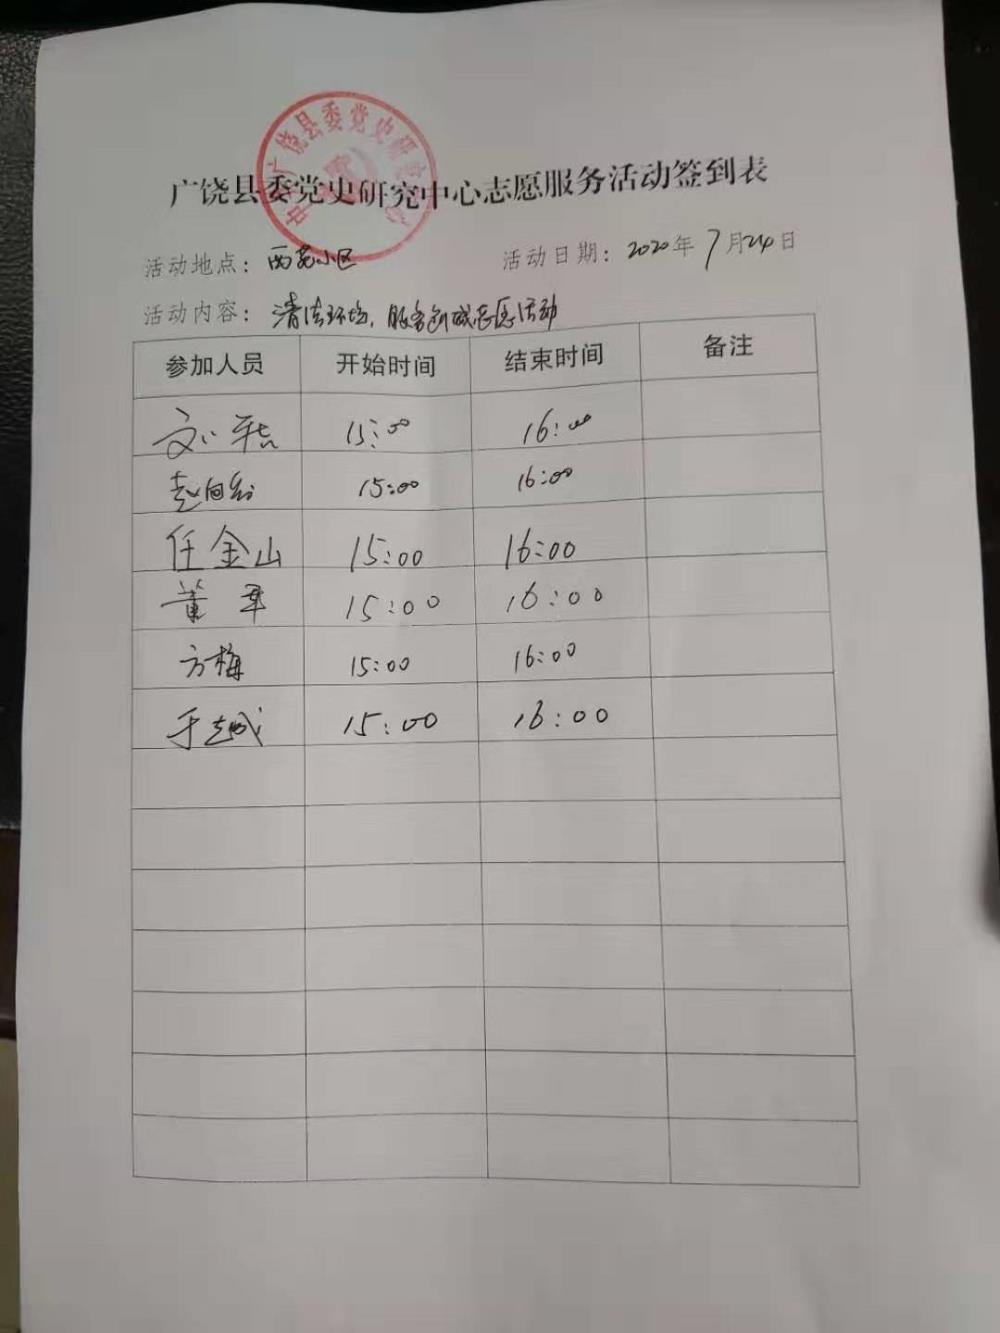 广饶县委党史研究中心志愿服务活动签到表
活动地点：西苑小区 活动日期：2020年7月24日
活动内容：清洁环境，服务创城志愿活动
参加人员 开始时间 结束时间 备注
刘 15:00 16:00
赵向 15:00 16:00
任金山 15:00 16:00
董军 15:00 16:00
方梅 15:00 16:00
于越成 15:00 16:00